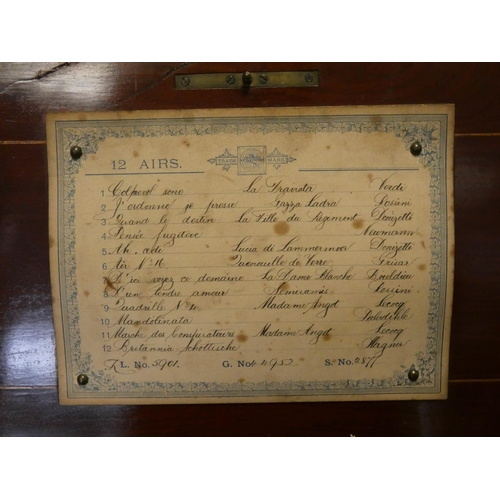 12 AIRS. TRADE MARK
1 sono La Traviata Verdi
2 J'ordonne je presse Gazza Ladra Rosini
3 Quand le destin La Fille du Régiment Donizetti
4 Pensée fugitive Naumann
5 Ah. Lucia de Lammermoor Donizetti
6 Air No 16 de Verre
7 voyez ce domaine La Dame Blanche
8 D'un tendre amour Semiramis Rossini
9 Quadrille No Madame Angot Lecocq
10 Mandolinata Paladilhe
11 Marche des Conspirateurs Madame Angot Lecocq
12 Britannia Schottische Wagner
L. No. 5901. G. No. 44952 S. No. 2877